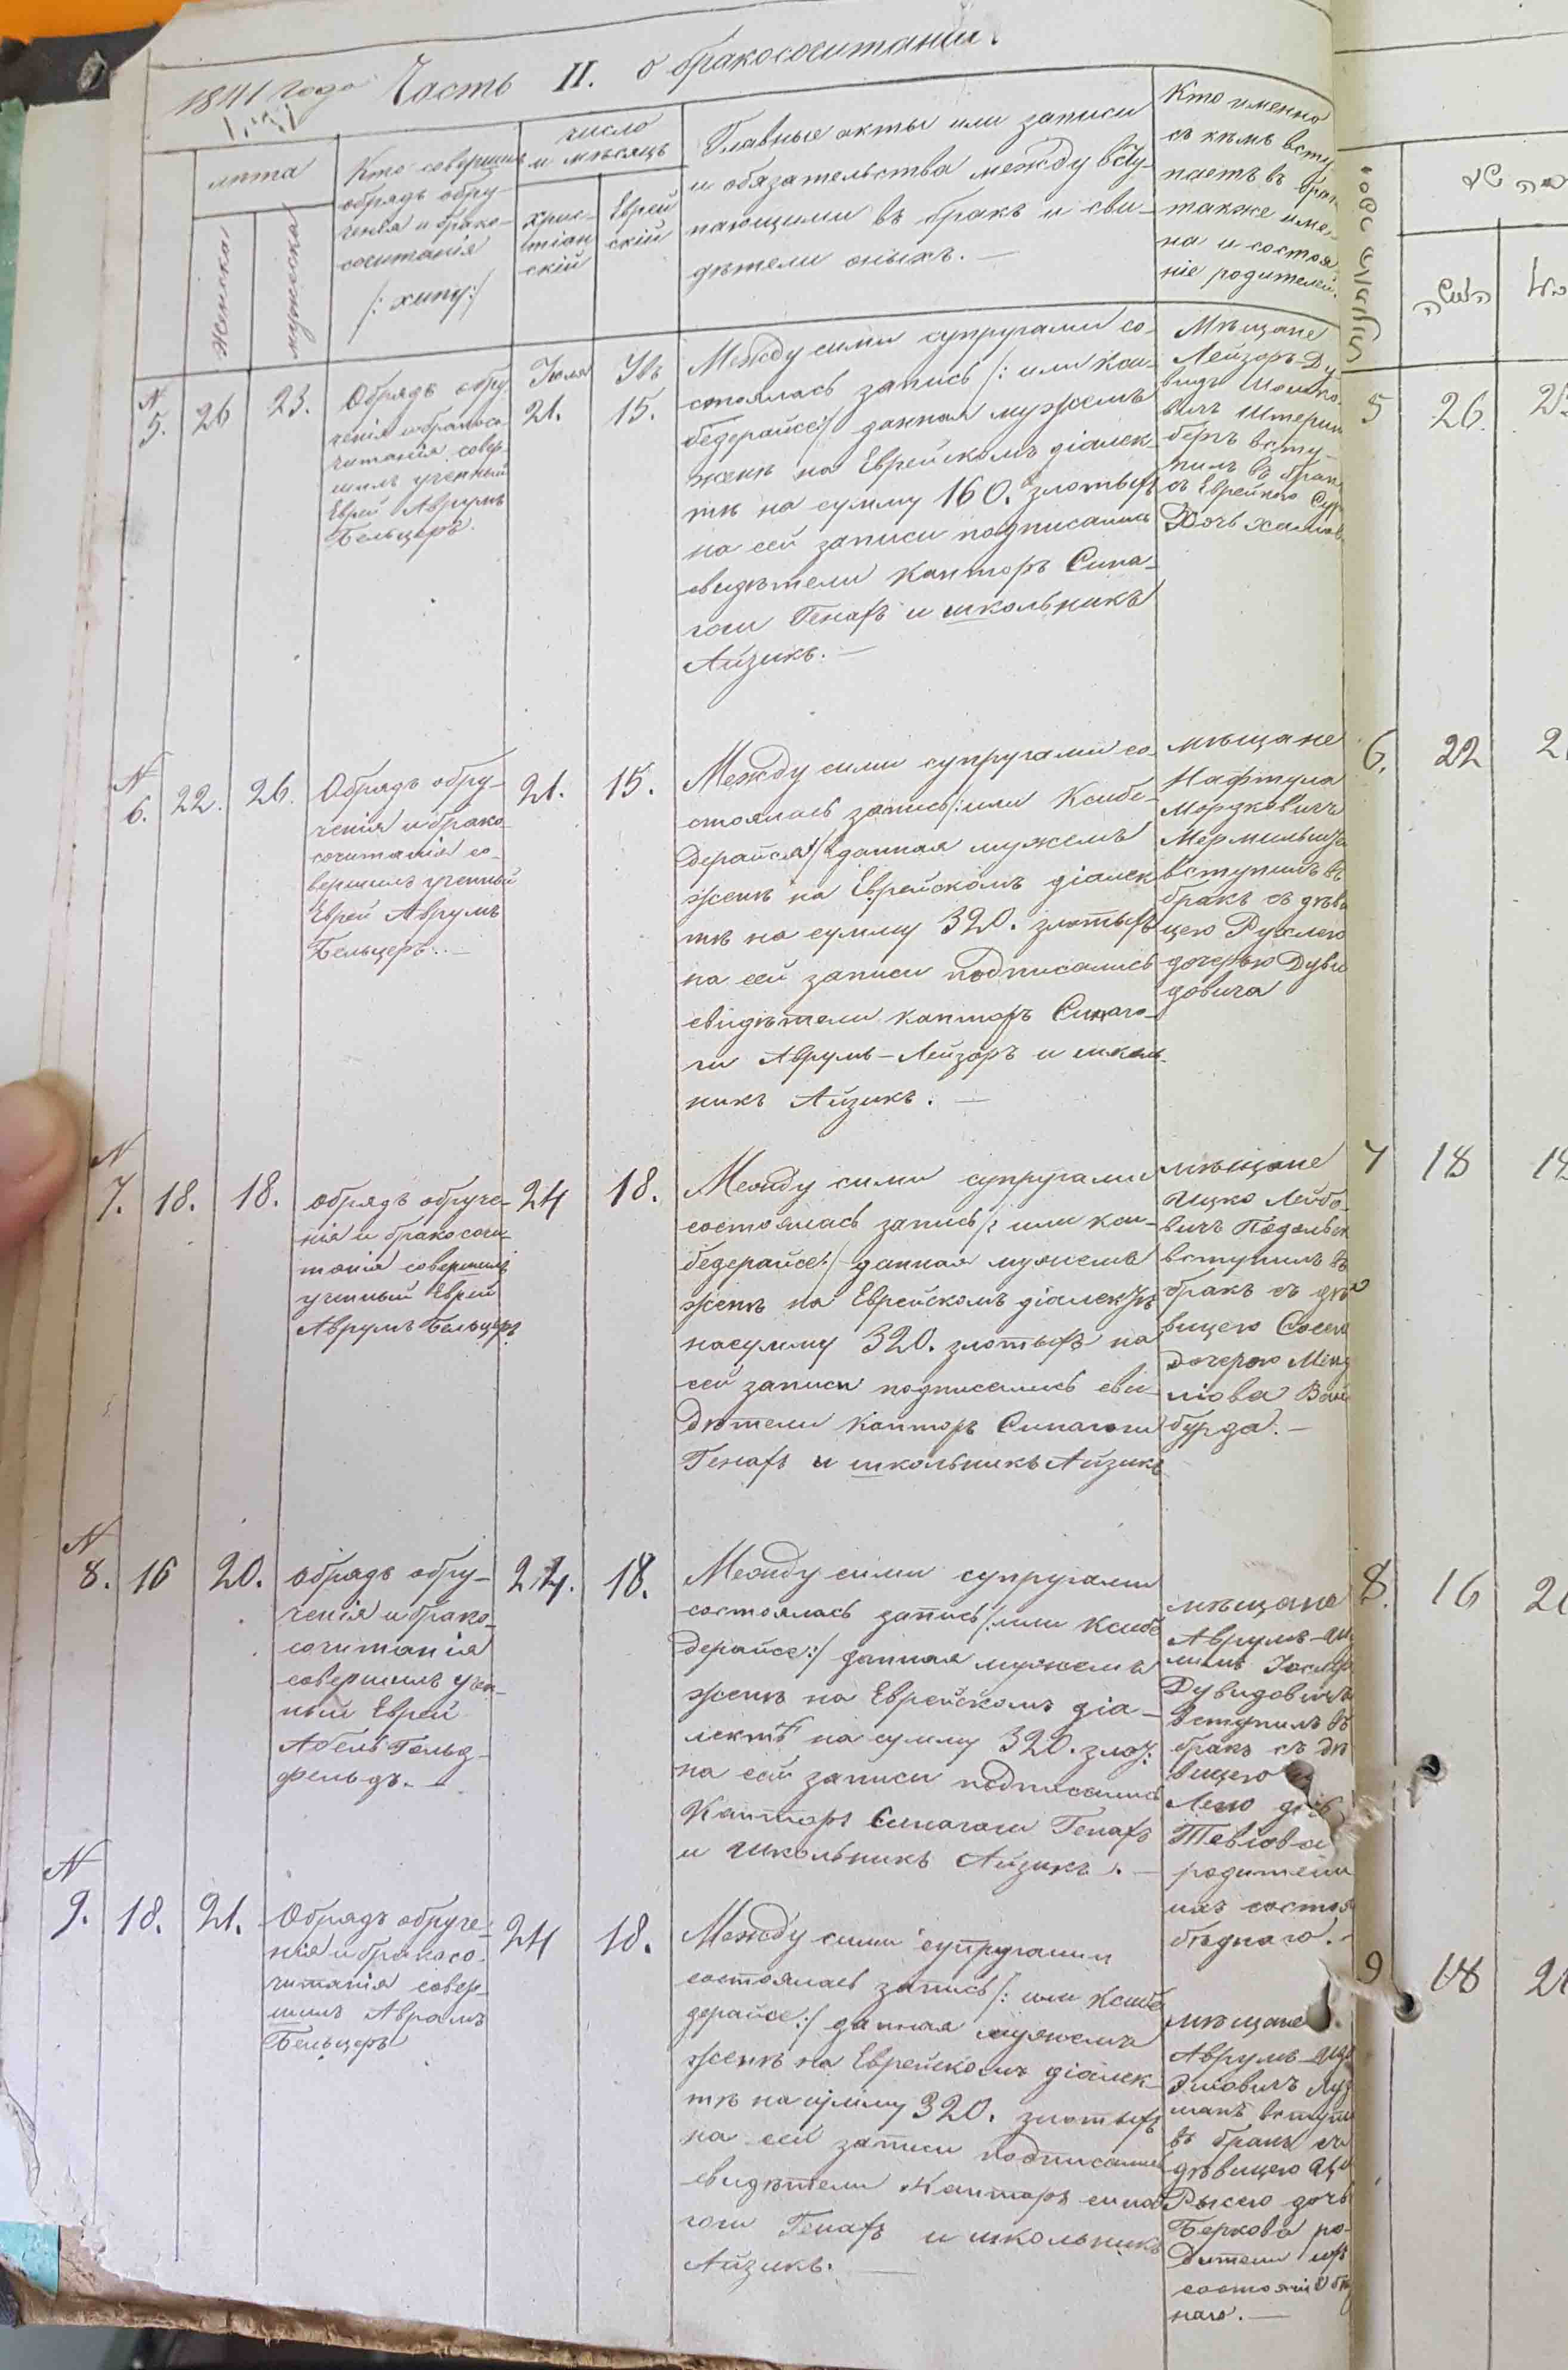 1841 года Часть II. о бракосочитаніи.
лѣта
женска
мужеска
Кто совершилъ
обрядъ обру-
ченія и брако-
сочитанія
/: хипу:/
число
и мѣсяцъ
хрис-
тіан
скій
Еврей
скій
Главные акты или записи
и обязательства между всту-
пающими въ бракъ и сви-
дѣтели оныхъ. —
Кто именно
съ кѣмъ всту
паетъ въ брак
также име-
на и состоя
ніе родителей.
N 5. 26 23.
Обрядъ обру
ченія и бракосо
читанія совер-
шилъ ученный
Еврей Аврумъ
Бельцеръ.
Іюля
21.
Увъ
15.
Между сими супругами со-
стоялась запись /: или кси-
бедерайсе:/ данная мужемъ
женѣ на Еврейскомъ діалек-
тѣ на сумму 160. злотыхъ
на сей записи подписались
свидѣтели канторъ Сина-
гоги Генахъ и школьникъ
Айзикъ. —
Мѣщане
Лейзоръ-Ду
видъ
вичъ Штерин
беръ всту-
пилъ въ брак
съ Еврейкою
Хамов
5 26.
N 6. 22. 26.
Обрядъ обру-
ченія и брако
сочитанія со-
вершилъ ученный
Еврей Аврумъ
Бельцеръ. —
21. 15.
Между сими супругами со-
стоялась запись /: или Ксибе-
дерайся:/ данная мужемъ
женѣ на Еврейскомъ діалек
тѣ на сумму 320. злотыхъ
на сей записи подписались
свидѣтели канторъ Синаго-
ги Аврумъ-Лейзоръ и школь-
никъ Айзикъ. —
мѣщане
Нафтула
Мордковичъ
вступилъ въ
бракъ съ дѣви
цею Рухлею
дочерью Дуви
довича
6. 22
N 7. 18. 18.
обрядъ обруче-
нія и бракосочи-
танія совершилъ
ученный Еврей
Аврумъ Бельцеръ
24 18.
Между сими супругами
состоялась запись /: или кси-
бедерайсе:/ данная мужемъ
женѣ на Еврейскомъ діалектѣ
на сумму 320. злотыхъ на
сей записи подписались сви-
дѣтели канторъ Синагоги
Генахъ и школьникъ Айзикъ
мѣщане
Ицко Лейбо-
вичъ Подольск
вступилъ въ
бракъ съ дѣ
вицею Сосею
дочерью Менд
лова Вай
бурда. —
7 18 18
N 8. 16 20.
обрядъ обру-
ченія и брако-
сочитанія
совершилъ учен-
ный Еврей
Абель Гольд-
фельдъ. —
24. 18.
Между сими супругами
состоялась запись /: или Ксибе
дерайсе:/ данная мужемъ
женѣ на Еврейскомъ діа-
лектѣ на сумму 320. злот:
на сей записи подписались
Канторъ Синагоги Генахъ
и Школьникъ Айзикъ. —
мѣщане
Дувидовичъ
вступилъ въ
бракъ съ дѣ
вицею
Лею дочь
Тевіова
родители
ихъ состоя
бѣднаго. —
8. 16
N 9. 18. 21.
Обрядъ обруче-
нія и бракосо-
читанія совер-
шилъ Аврамъ
Бельцеръ
24 18.
Между сими супругами
состоялась запись /: или Ксибе
дерайсе:/ данная мужемъ
женѣ на Еврейскомъ діалек-
тѣ на сумму 320. злотыхъ
на сей записи подписались
свидѣтели Канторъ сина
гоги Генахъ и школьникъ
Айзикъ. —
мѣщане
Аврумъ-
вступи
въ бракъ съ
дѣвицею
Рысею дочь
Беркова ро-
дители ихъ
состоянія бѣд
наго. —
9 18